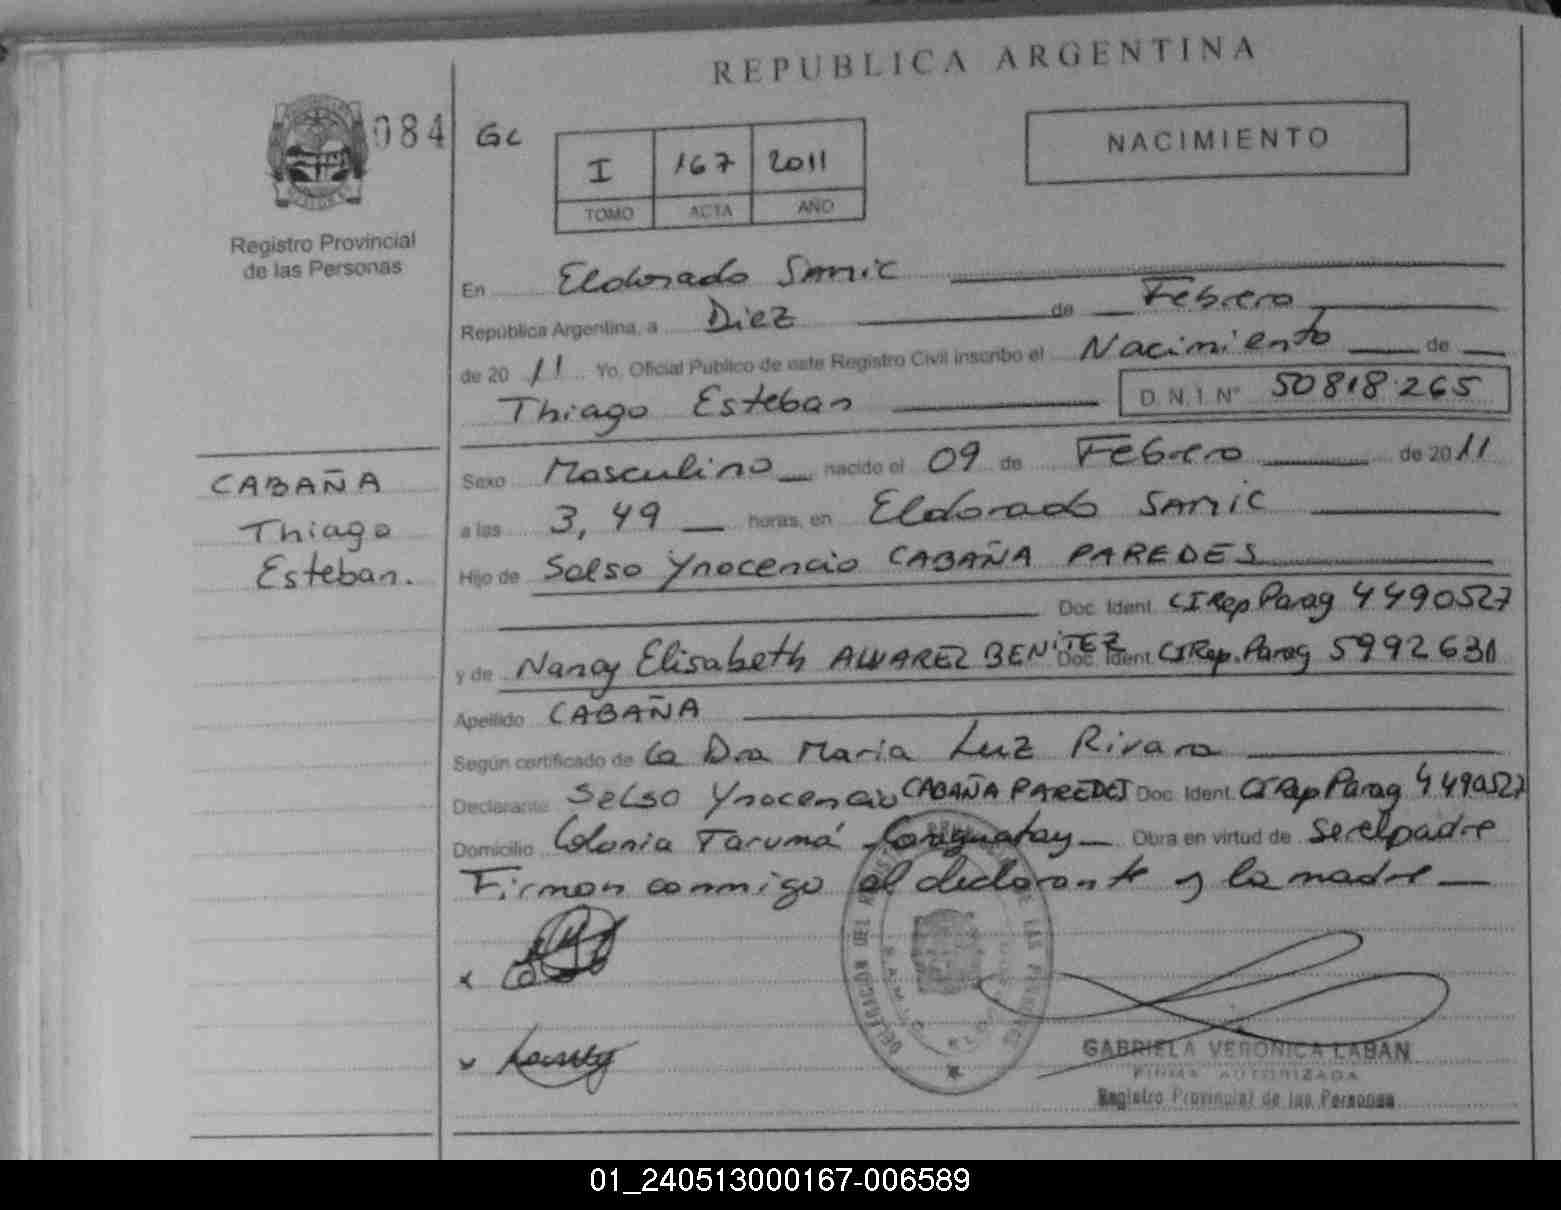 REPUBLICA ARGENTINA
084 GC
I 167 2011
TOMO ACTA AÑO
NACIMIENTO
Registro Provincial
de las Personas
En Eldorado Samic
República Argentina, a Diez de Febrero
de 2011 Yo, Oficial Público de este Registro Civil inscribo el Nacimiento de
Thiago Esteban D. N. I. Nº 50818.265
CABAÑA
Thiago
Esteban.
Sexo Masculino nacido el 09 de Febrero de 2011
a las 3,49 horas, en Eldorado Samic
Hijo de Selso Ynocencio CABAÑA PAREDES
Doc. Ident. CI Rep Parag 4490527
y de Nancy Elisabeth ALVAREZ BENITEZ Doc. Ident. CI Rep. Parag 5992630
Apellido CABAÑA
Según certificado de La Dra Maria Luz Rivara
Declarante Selso Ynocencio CABAÑA PAREDES Doc. Ident. CI Rep Parag 4490527
Domicilio Colonia Tarumá Caraguatay Obra en virtud de ser el padre
Firman conmigo el declarante y la madre
GABRIELA VERONICA LABAN
FIRMA AUTORIZADA
Registro Provincial de las Personas
01_240513000167-006589